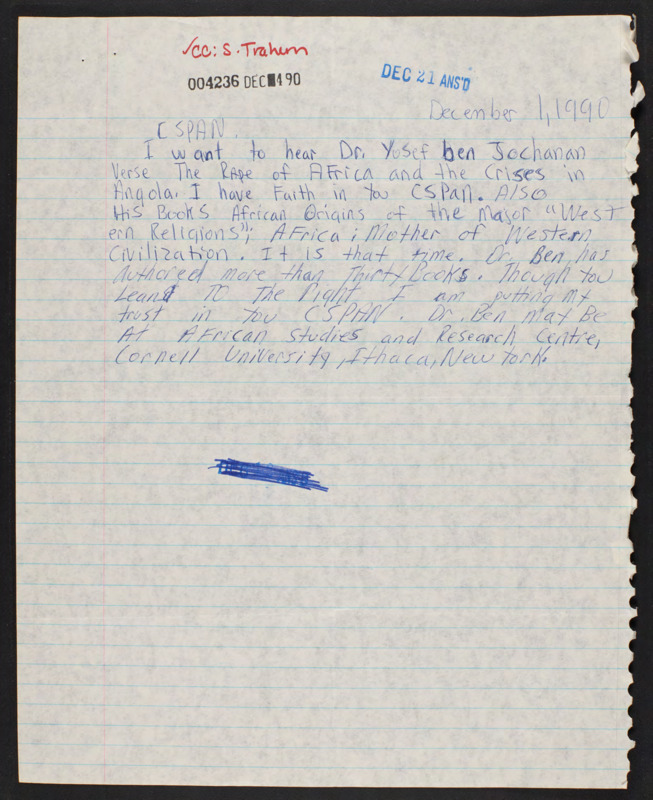 ✓cc: S. Trahern
004236 DEC 490
DEC 21 ANS'D
December 1, 1990
CSPAN.
I want to hear Dr. Yosef ben Jochanan
Verse The Rape of AFrica and the Crises in
Angola. I have Faith in You CSPan. Also
His Books African Origins of the Major "West
ern Religions"; AFrica: Mother of Western
Civilization. It is that time. Dr. Ben has
Authored more than Thirty Books. Though You
Leand TO The Right I am putting My
trust in You CSPAN. Dr. Ben May Be
At AFrican Studies and Research Centre,
Cornell University, Ithaca, New York.